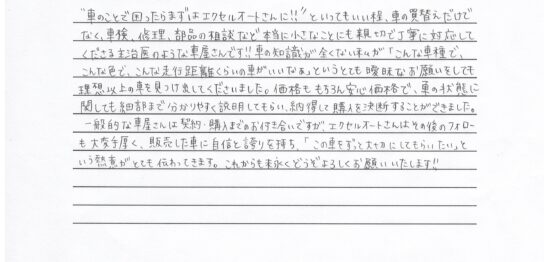 "車のことで困ったらまずはエクセルオートさんに!!"といってもいい程、車の買替えだけで
なく、車検、修理、部品の相談など本当に小さなことにも親切で丁寧に対応して
くださる主治医のような車屋さんです!!車の知識が全くない私が「こんな車種で、
こんな色で、こんな走行距離くらいの車がいいなぁ」というとても曖昧なお願いをしても
理想以上の車を見つけ出してくださいました。価格ももちろん安心価格で、車の状態に
関しても細部まで分かりやすく説明してもらい、納得して購入を決断することができました。
一般的な車屋さんは契約・購入までのお付き合いですが、エクセルオートさんはその後のフォロー
も大変手厚く、販売した車に自信と誇りを持ち、「この車をずっと大切にしてもらいたい」と
いう熱意がとても伝わってきます。これからも末永くどうぞよろしくお願いいたします!!